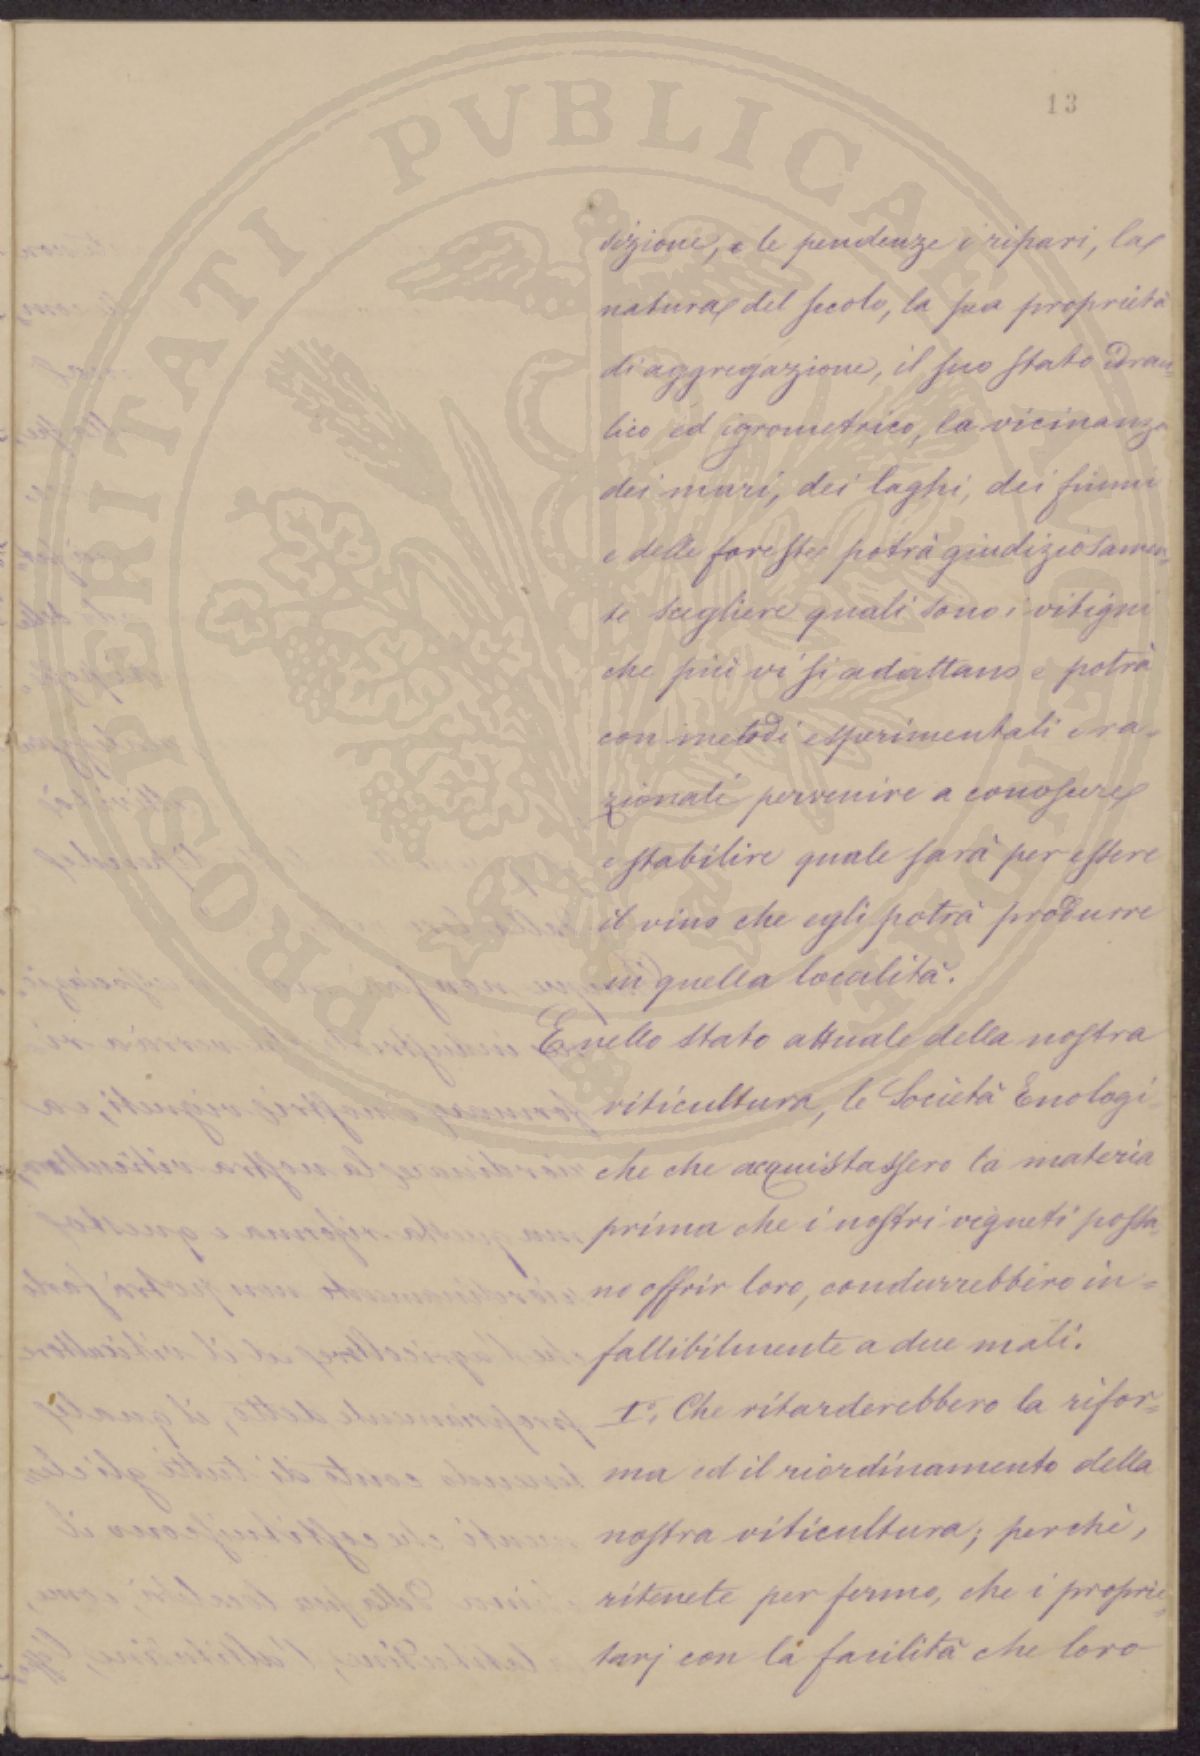 13
PROSPERITATI PVBLICAE
sizione, e le pendenze i ripari, la
natura del suolo, la sua proprietà
di aggregazione, il suo stato idrau-
lico ed igrometrico, la vicinanza
dei mari, dei laghi, dei fiumi
e delle foreste potrà giudiziosamen-
te scegliere quali sono i vitigni
che più vi si adattano e potrà
con metodi esperimentali e ra-
zionali pervenire a conoscere
e stabilire quale sarà per essere
il vino che egli potrà produrre
in quella località.
E nello stato attuale della nostra
viticultura, le Società Enologi-
che che acquistassero la materia
prima che i nostri vigneti possa-
no offrir loro, condurrebbero in-
fallibilmente a due mali.
I°. Che ritarderebbero la rifor-
ma ed il riordinamento della
nostra viticultura; perchè,
ritenete per fermo, che i proprie-
tarj con la facilità che loro